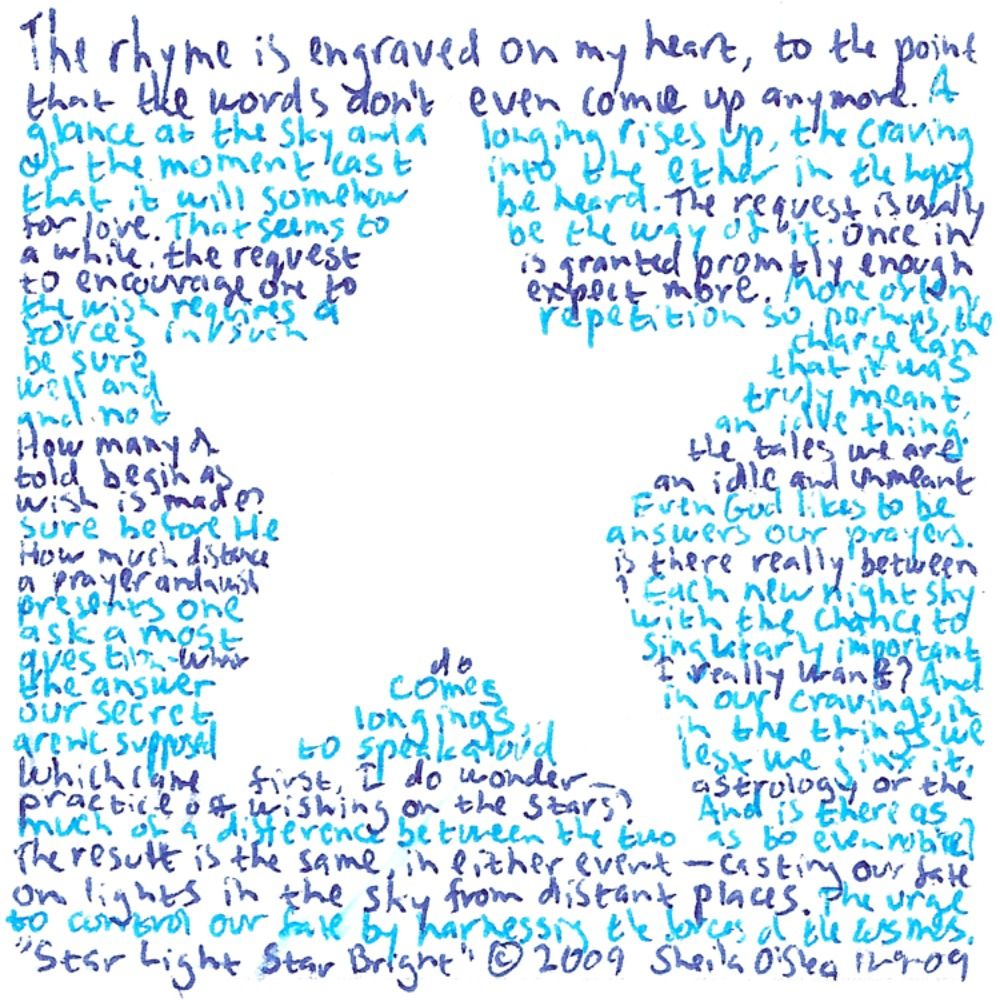 The rhyme is engraved on my heart, to the point
that the words don't even come up anymore. A
glance at the sky and a longing rises up, the craving
of the moment cast into the ether in the hopes
that it will somehow be heard. The request is usually
for love. That seems to be the way of it. Once in
a while, the request is granted promptly enough
to encourage one to expect more. More often,
the wish requires a repetition so, perhaps, the
forces in such charge can
be sure that it was
well and truly meant,
and not an idle thing.
How many of the tales we are
told begin as an idle and unmeant
wish is made? Even God likes to be
sure before He answers our prayers.
How much distance is there really between
a prayer and wish ? Each new night sky
presents one with the chance to
ask a most singularly important
question - What do I really want? And
the answer comes in our cravings, in
our secret longings, in the things we
aren't supposed to speak aloud lest we jinx it.
Which came first, I do wonder — astrology or the
practice of wishing on the stars? And is there as
much of a difference between the two as to even notice?
The result is the same, in either event — casting our fate
on lights in the sky from distant places. The urge
to control our fate by harnessing the forces of the cosmos.
"Star Light Star Bright" © 2009 Sheila O'Shea 12-9-09